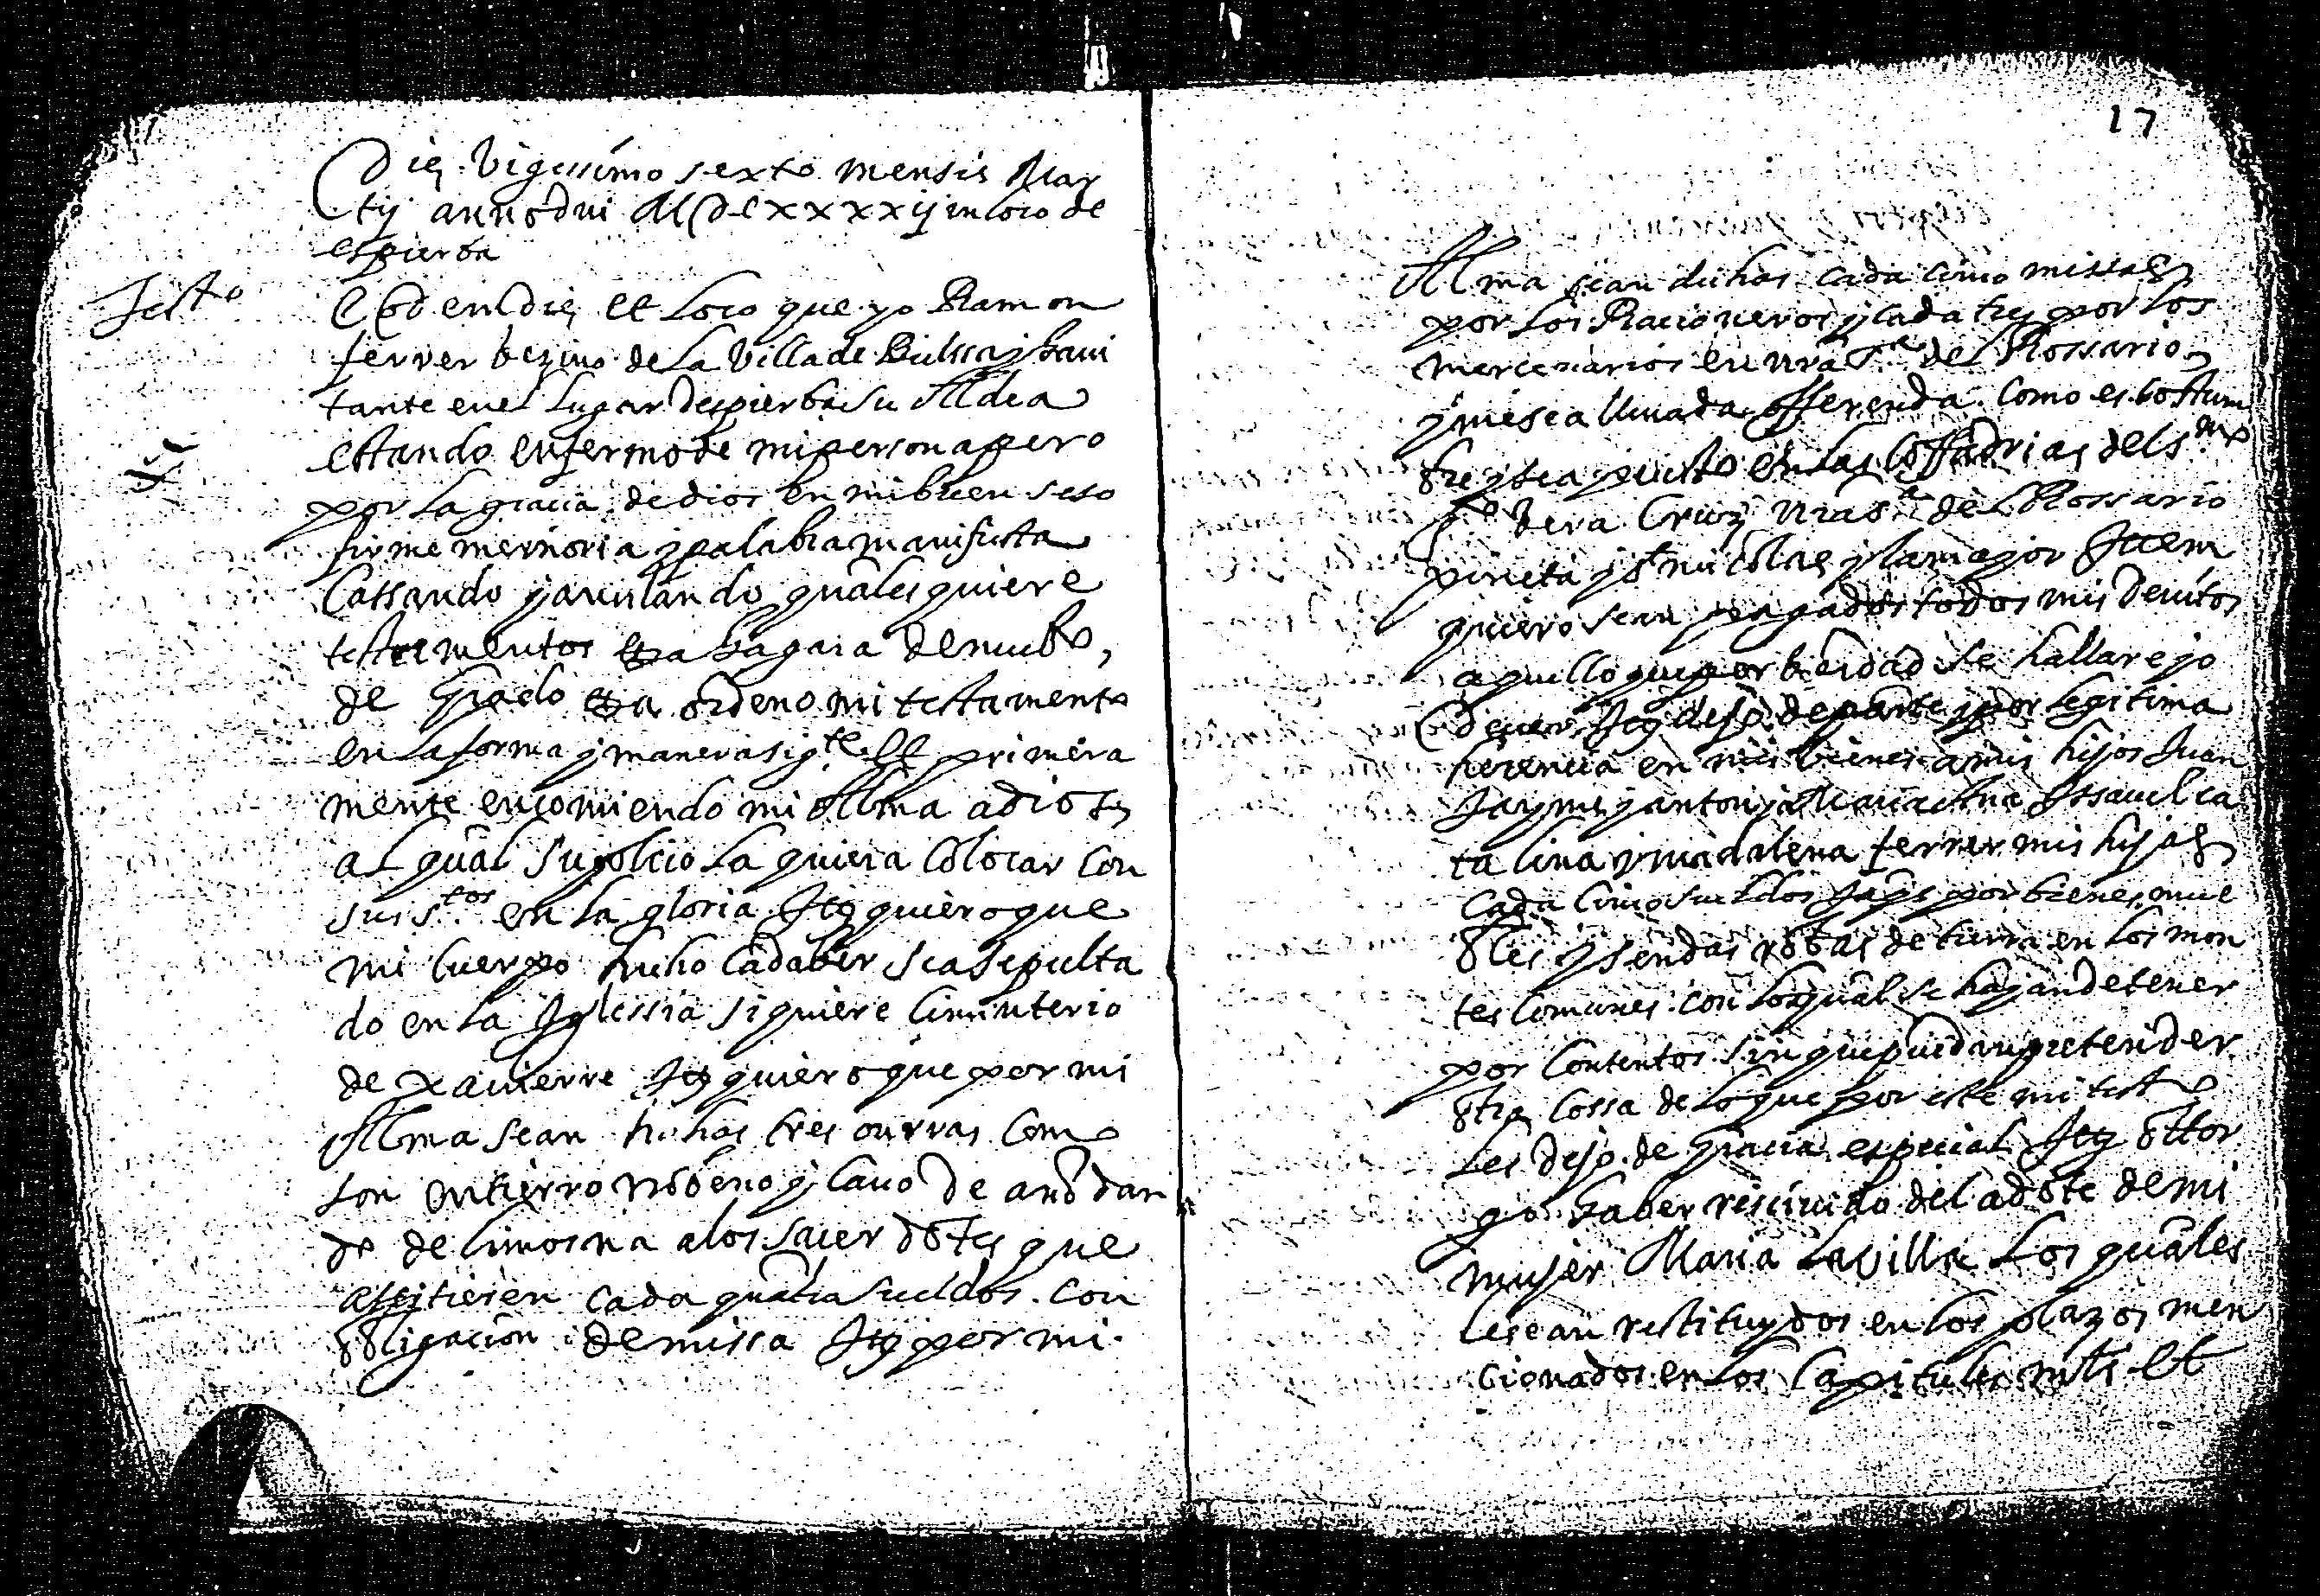 Die Vigessimo sexto mensis Mar
tij anno dni MDCxxxxij in loco de
espierba
Testo
Eod em die et loco que yo Ramon
ferrer bezino de La Villa de Bielssa y haui
tante en el Lugar despierba su Aldea
estando enfermo de mi persona pero
por La gracia de dios en mi buen seso
firme memoria y palabra manifiesta
Cassando y anulando quales quiere
testamentos etta hagora de nuebo,
de Grado etta ordeno mi testamento
en La forma y manera sigte. Et primera
mente encomiendo mi Alma a dios
al qual suplico La quiera Colocar Con
sus stos. en La gloria Itt quiero que
mi Cuerpo hecho Cadaber sea sepulta
do en La Iglessia si quiere Ciminterio
de xauierre Itt quiero que por mi
Alma sean hechas tres onrras Como
son entierro nobeno y Cauo de año dan
do de Limosna a los sacerdotes que
assitieren Cada quatro sueldos. Con
obligacion de missa Itt por mi
17
Alma sean dichas cada cinco missas
por Los Racioneros y Cada tres por Los
mercenarios en nra Sa. del Rossario
y me sea lleuada offerenda. Como es costum
bre y sea puesto en Las Coffadrias del Smo
Sto. Vera Cruz nra Sa. del Rossario
pineta y st nicolas y la mayor Item
quiero sean pagados todos mis deuitos
aquello que por berdad se hallare yo
deuer. Itt dejo de parte y por Legitima
herencia en mis bienes a mis hijos Juan
Jayme y anton y a Maria Ana Issauel ca
talina y madalena ferrer mis hijas
Cada Cinco sueldos Jaqs por bienes mue
bles y sendas robas de tierra en Los mon
tes Comunes. con Lo qual se hayan de tener
por Contentos. sin que puedan pretender
otra Cossa de Lo que por este mi testo
Les dejo de gracia especial Itt ottor
go haber resciuido del adote de mi
mujer Maria La Villa Los quales
Le sean restituydos en Los plazos men
cionados en Los Capitules mtls Et